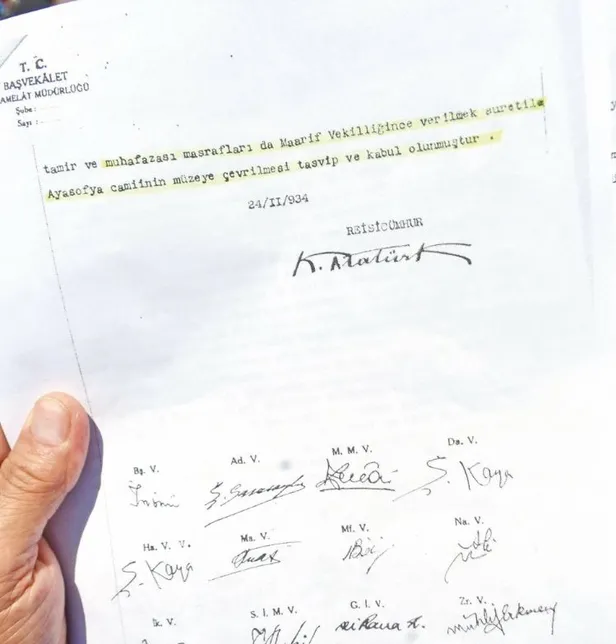 T. C.
BAŞVEKÂLET
AMELÂT MÜDÜRLÜĞÜ
Şube :
Sayı :
tamir ve muhafazası masrafları da Maarif Vekilliğince verilmek suretile
Ayasofya camiinin müzeye çevrilmesi tasvip ve kabul olunmuştur .
24/II/934
REİSİCÜMHUR
K. Atatürk
Bş. V. Ad. V. M. M. V. Da. V.
İnönü Ş. Kaya
Ha. V. V. Ma. V. Mf. V. Na. V.
Ş. Kaya
İk. V. S. İ. M. V. G. İ. V. Zr. V.